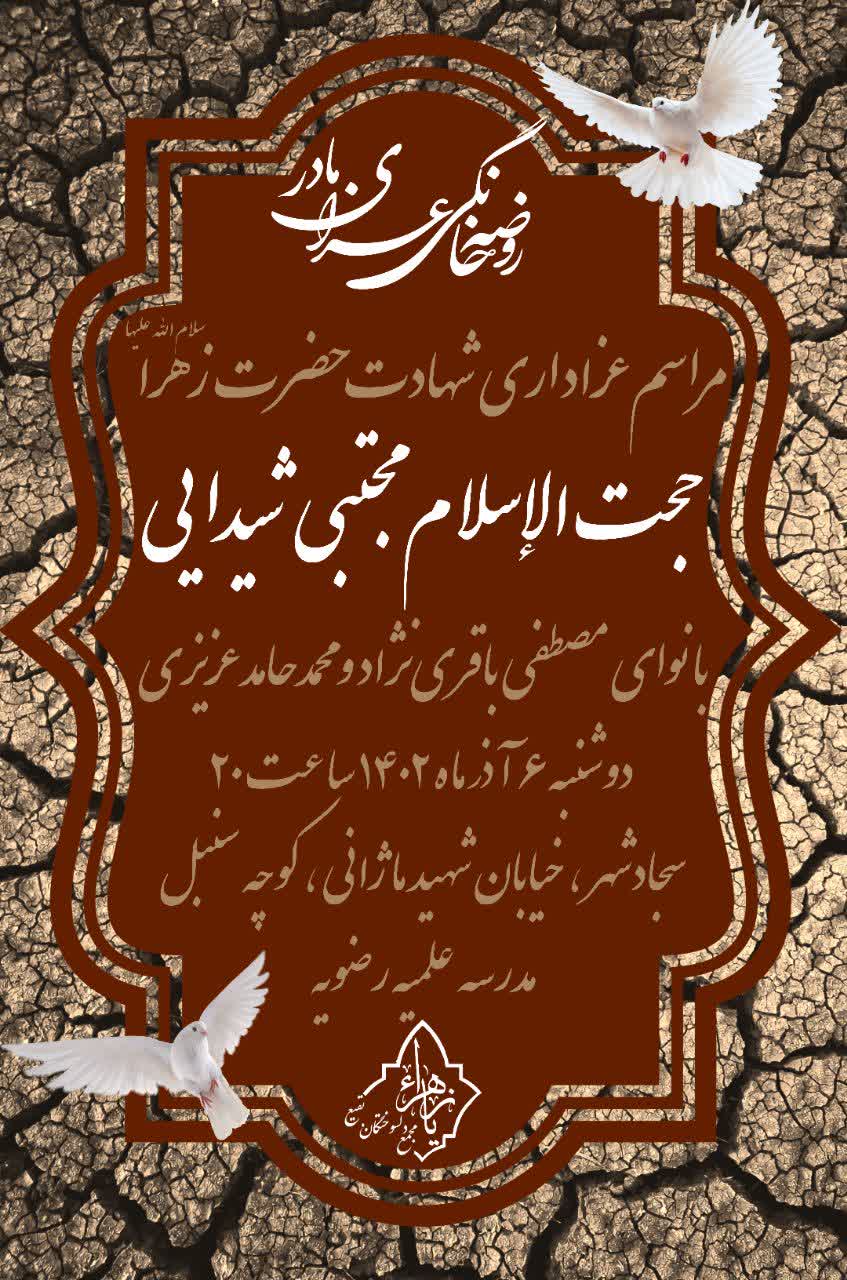 روضه خانگی
عزای مادر
مراسم عزاداری شهادت حضرت زهرا سلام الله علیها
حجت الإسلام مجتبی شیدایی
بانوای مصطفی باقری نژاد و محمدحامد عزیزی
دوشنبه ۶ آذرماه ۱۴۰۲ ساعت ۲۰
سجادشهر، خیابان شهید ماژانی، کوچه سنبل
مدرسه علمیه رضویه
یا زهراء
مجمع دلسوختگان بقیع